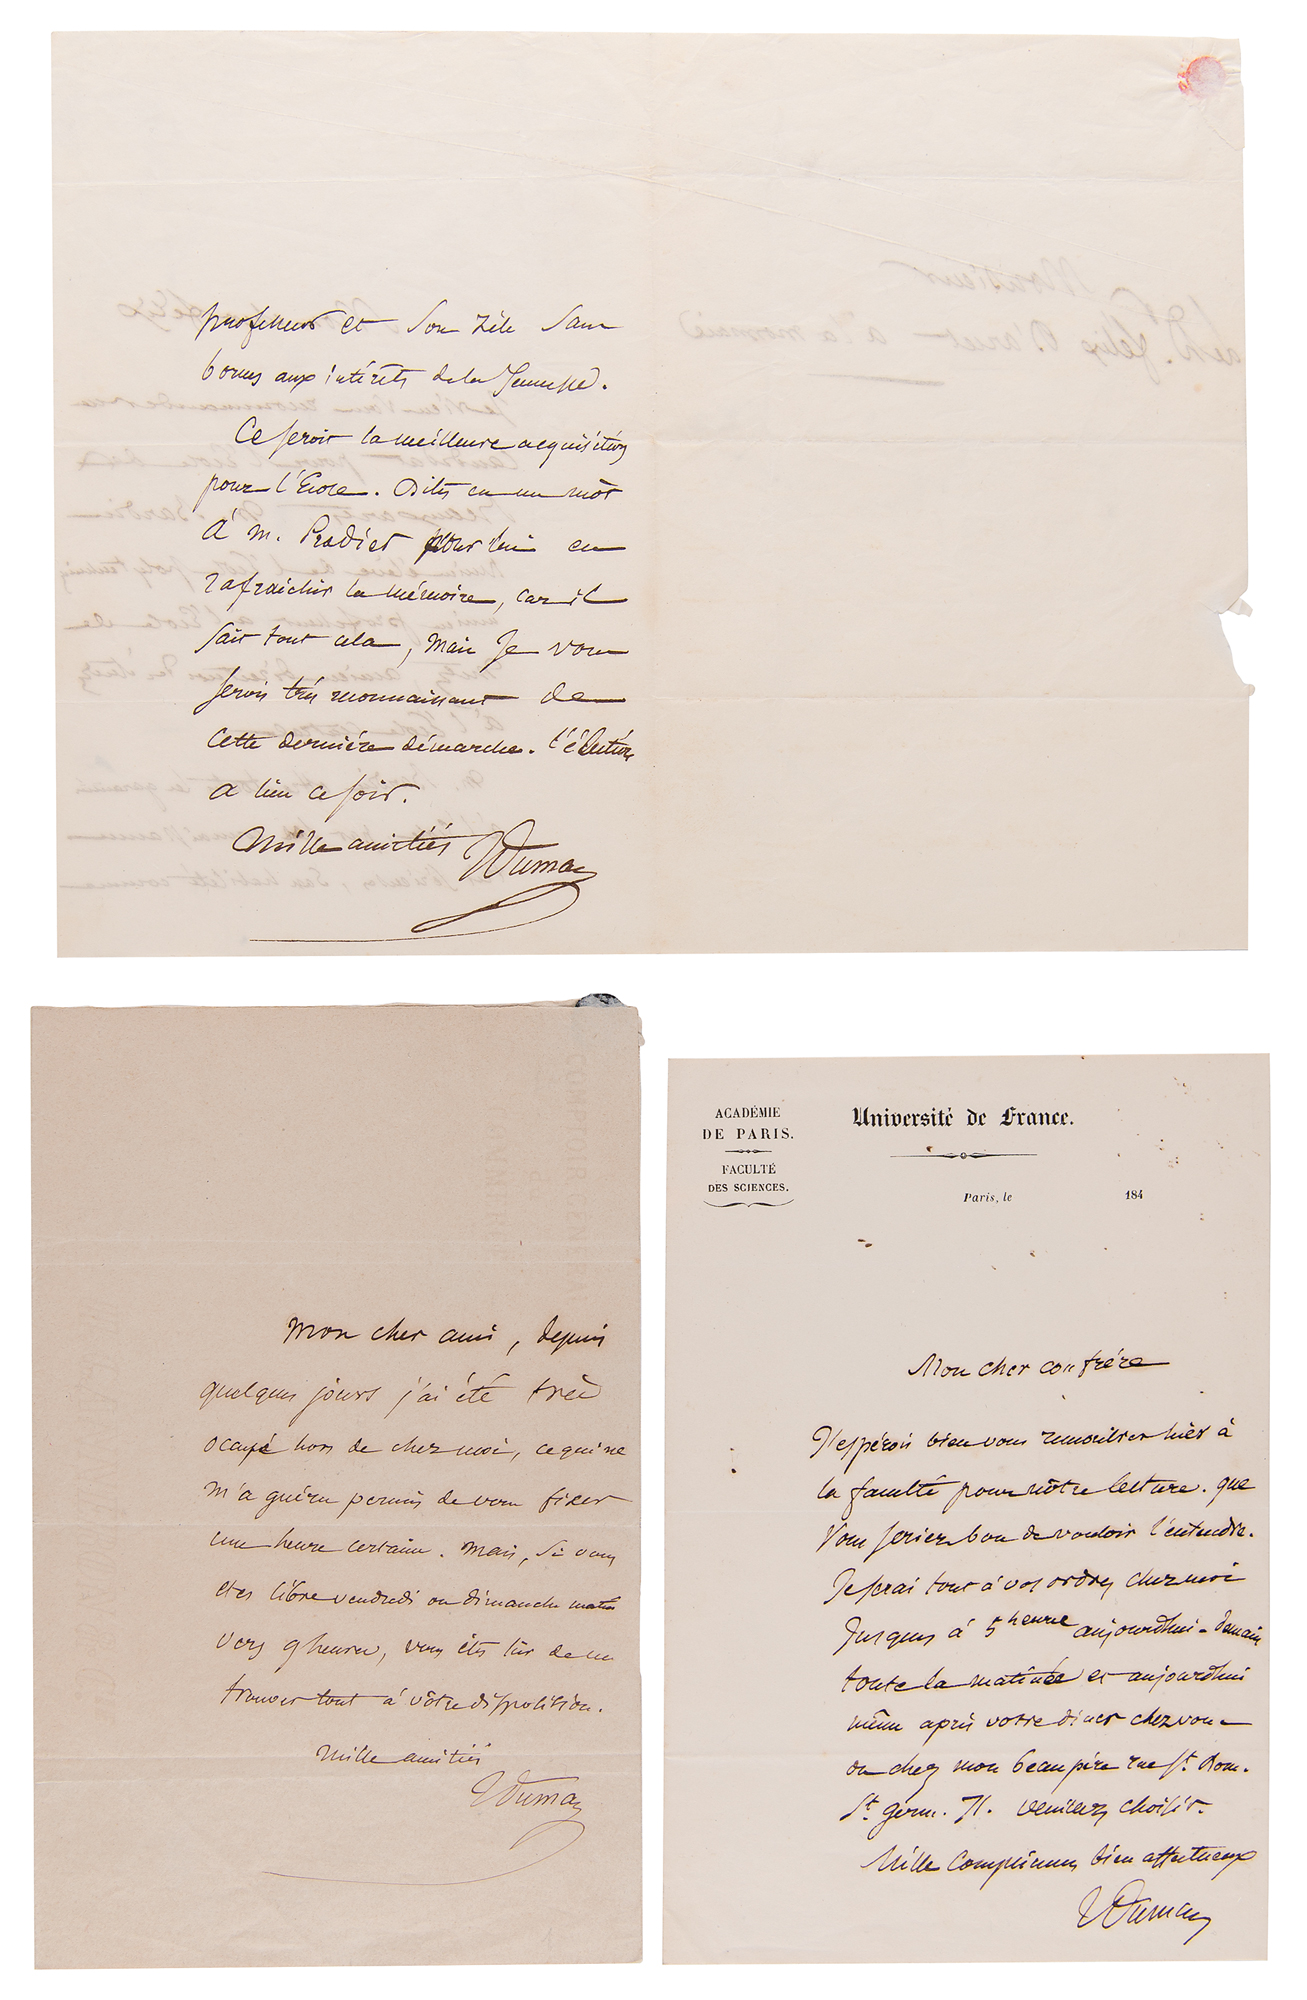 professeur et son zèle sans
bornes aux intérêts de la Jeunesse.
Ce seroit la meilleure acquisition
pour l'Ecole. Dites en un mot
à M. Pradier pour lui en
rafraichir la mémoire, car il
sait tout cela, mais je vous
serois très reconnaissant de
cette dernière démarche. l'élection
a lieu ce soir.
Mille amitiés Dumas
Monsieur
felix D'arcet à la monnaie
Mon cher ami, depuis
quelques jours j'ai été très
occupé hors de chez moi, ce qui ne
m'a guère permis de vous fixer
une heure certaine. Mais, si vous
etes libre vendredi ou dimanche matin
vers 9 heures, vous êtes sûr de me
trouver tout à vôtre disposition.
Mille amitiés
Dumas
ACADÉMIE
DE PARIS.
FACULTÉ
DES SCIENCES.
Université de France.
Paris, le 184
Mon cher confrère
J'espérois bien vous rencontrer hier à
la faculté pour nôtre lecture. que
vous seriez bon de vouloir l'entendre.
Je serai tout à vos ordres chez moi
Jusques à 5 heures aujourdhui - demain
toute la matinée et aujourdhui
même après votre diner chez vous
ou chez mon beau père rue St. Dom.
St. germ. 71. veuillez choisir.
Mille complimens bien affectueux
Dumas